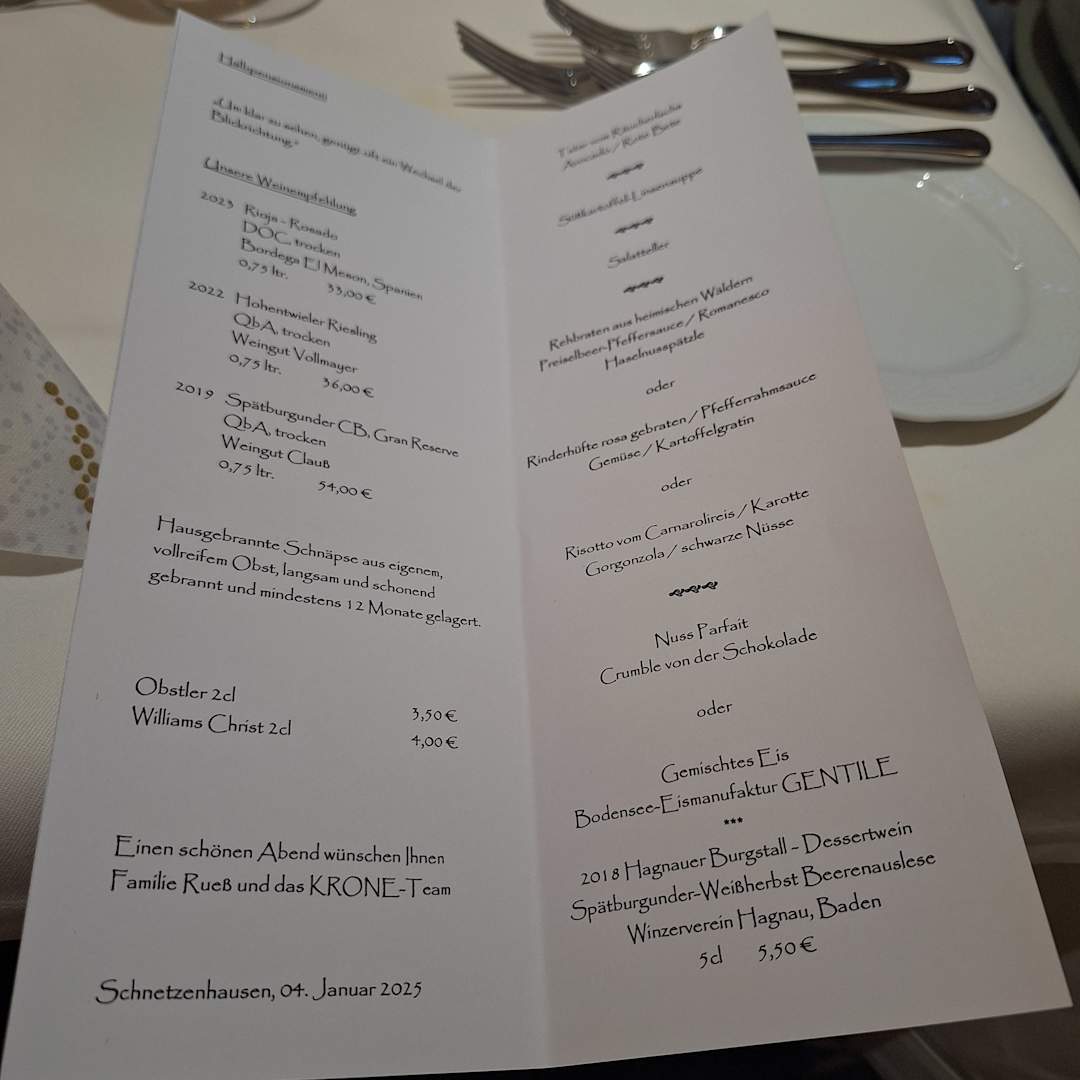 Halbpensionsmenü
„Um klar zu sehen, genügt oft ein Wechsel der
Blickrichtung.“
Unsere Weinempfehlung
2023 Rioja - Rosado
DOC, trocken
Bordega El Meson, Spanien
0,75 ltr. 33,00 €
2022 Hohentwieler Riesling
QbA, trocken
Weingut Vollmayer
0,75 ltr. 36,00 €
2019 Spätburgunder CB, Gran Reserve
QbA, trocken
Weingut Clauß
0,75 ltr. 54,00 €
Hausgebrannte Schnäpse aus eigenem,
vollreifem Obst, langsam und schonend
gebrannt und mindestens 12 Monate gelagert.
Obstler 2cl 3,50 €
Williams Christ 2cl 4,00 €
Einen schönen Abend wünschen Ihnen
Familie Rueß und das KRONE-Team
Schnetzenhausen, 04. Januar 2025
Tatar vom Räucherlachs
Avocado / Rote Bete
Süßkartoffel-Linsensuppe
Salatteller
Rehbraten aus heimischen Wäldern
Preiselbeer-Pfeffersauce / Romanesco
Haselnusspätzle
oder
Rinderhüfte rosa gebraten / Pfefferrahmsauce
Gemüse / Kartoffelgratin
oder
Risotto vom Carnarolireis / Karotte
Gorgonzola / schwarze Nüsse
Nuss Parfait
Crumble von der Schokolade
oder
Gemischtes Eis
Bodensee-Eismanufaktur GENTILE
***
2018 Hagnauer Burgstall - Dessertwein
Spätburgunder-Weißherbst Beerenauslese
Winzerverein Hagnau, Baden
5cl 5,50 €